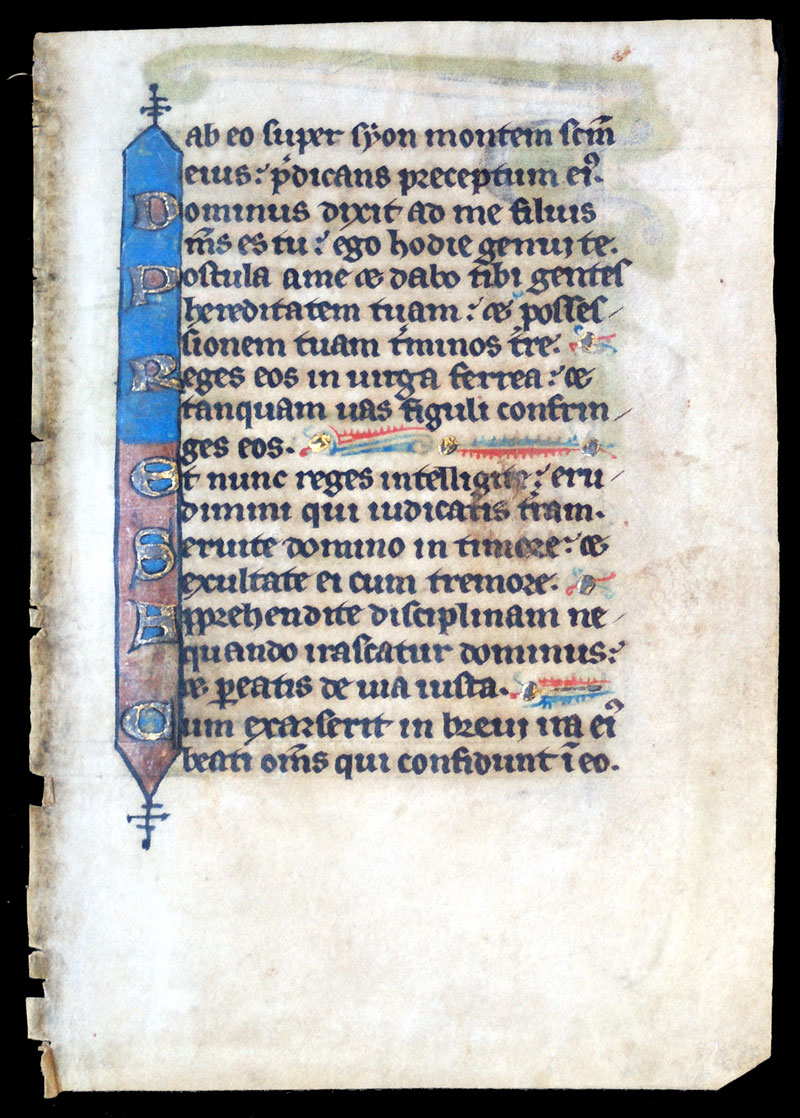 ab eo super syon montem scm̄
eius: p̄dicans preceptum ei⁹.
Dominus dixit ad me filius
m̄s es tu: ego hodie genui te.
Postula a me ⁊ dabo tibi gentes
hereditatem tuam: ⁊ posses/
sionem tuam t̄minos t̄re.
Reges eos in uirga ferrea: ⁊
tanquam uas figuli confrin/
ges eos.
Et nunc reges intelligite: eru/
dimini qui iudicatis t̄ram.
Seruite domino in timore: ⁊
exultate ei cum tremore.
Apprehendite disciplinam ne/
quando irascatur dominus:
⁊ ꝑeatis de uia iusta.
Cum exarserit in breui ira ei⁹
beati om̄s qui confidunt ī eo.